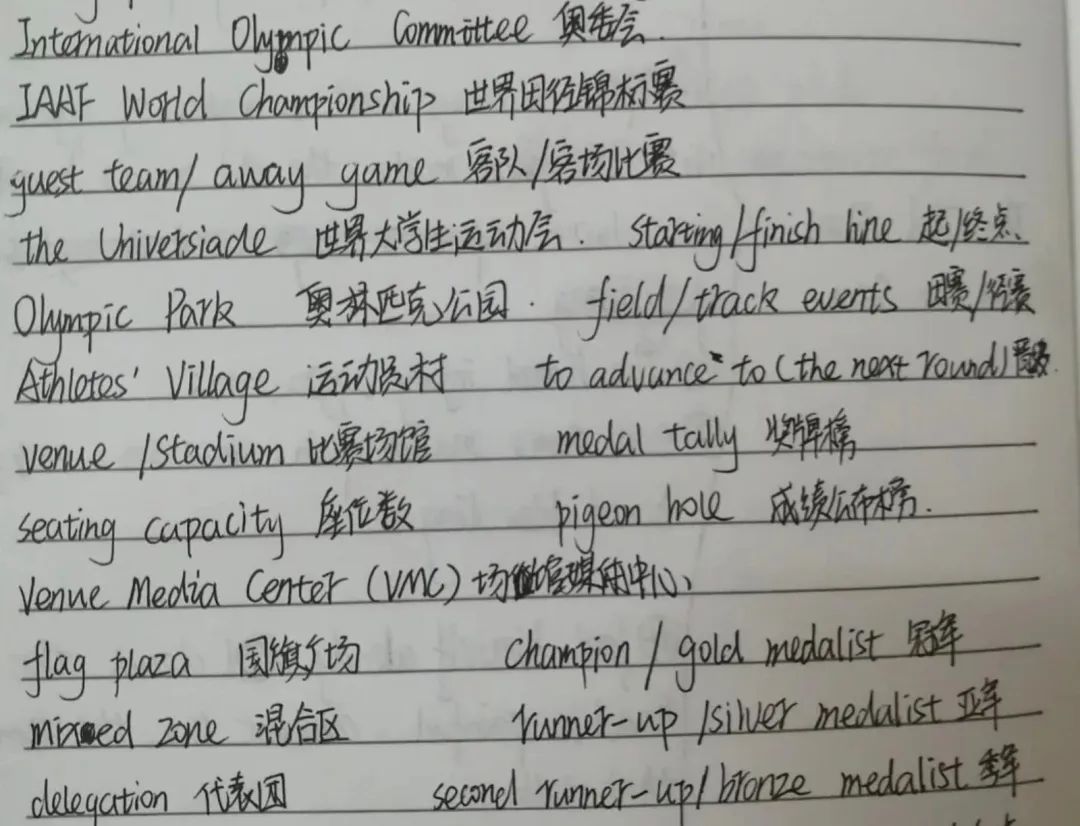 International Olympic Committee 奥委会.
IAAF World Championship 世界田径锦标赛
guest team/ away game 客队/客场比赛
the Universiade 世界大学生运动会. starting/finish line 起/终点.
Olympic Park 奥林匹克公园. field/track events 田赛/径赛
Athletes' Village 运动员村 to advance to (the next round) 晋级.
venue /stadium 比赛场馆 medal tally 奖牌榜
seating capacity 座位数 pigeon hole 成绩公布榜.
Venue Media Center (VMC) 场馆媒体中心.
flag plaza 国旗广场 champion / gold medalist 冠军
mixed zone 混合区 runner-up /silver medalist 亚军
delegation 代表团 second runner-up/ bronze medalist 季军